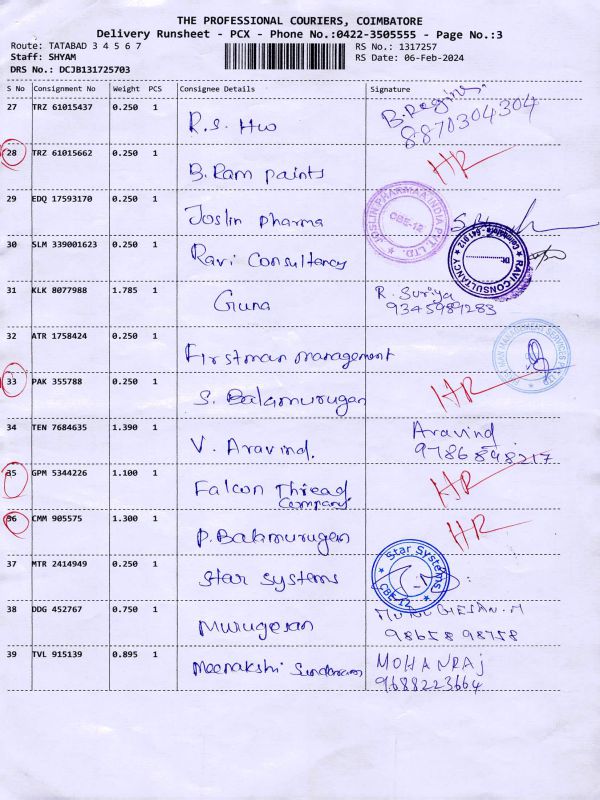 THE PROFESSIONAL COURIERS, COIMBATORE
Delivery Runsheet - PCX - Phone No.:0422-3505555 - Page No.:3
Route: TATABAD 3 4 5 6 7 RS No.: 1317257
Staff: SHYAM RS Date: 06-Feb-2024
DRS No.: DCJB131725703
S No Consignment No Weight PCS Consignee Details Signature
27 TRZ 61015437 0.250 1 R.S. HW B. Regins 8870304304
28 TRZ 61015662 0.250 1 B. Ram paints HR
29 EDQ 17593170 0.250 1 Joslin pharma JOSLIN PHARMAA INDIA PVT. LTD. CBE-12
30 SLM 339001623 0.250 1 Ravi Consultancy RAVI CONSULTANCY Coimbatore - 641 012
31 KLK 8077988 1.785 1 Guna R. Suriya 9345989283
32 ATR 1758424 0.250 1 Firstman management
33 PAK 355788 0.250 1 S. Balamurugan HR
34 TEN 7684635 1.390 1 V. Aravind. Aravind 9786848217
35 GPM 5344226 1.100 1 Falcon Thread Company HR
36 CMM 905575 1.300 1 P. Balamurugan HR
37 MTR 2414949 0.250 1 Star Systems Star Systems CBE-12
38 DDG 452767 0.750 1 Murugesan MURUGESAN.M 98658 98758
39 TVL 915139 0.895 1 Meenakshi Sundaram MOHANRAJ 9688223664